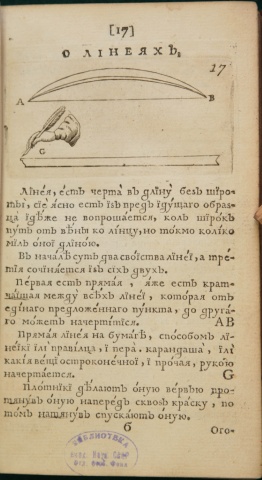 [17]
О ЛІНЕЯХЪ.
17
A
B
G
Лінея, есть черта въ дліну безъ шіро-
ты, сіе ясно есть ізъ предъ ідущаго образ-
ца ідѣже не вопрошается, коль шірокъ
путь отъ вѣны ко лінцу, но токмо коліко
міль оной дліною.
Въ началѣ суть два свойства лінеі, а тре-
тія сочіняется ізъ сіхъ двухъ.
Первая есть прямая, яже есть крат-
чайшая между всѣхъ лінеі, которая отъ
едінаго предложеннаго пункта, до друга-
го можетъ начертітіся. AB
Прямая лінея на бумагѣ, способомъ лі-
неікі ілі правілца, і пера. карандаша, ілі
какія вещі остроконечноі, і прочая, рукою
начертается. G
Плотнікі дѣлаютъ оную вервью про-
тянувъ оную напередъ сквозь краску, по
томъ натянувъ спускаютъ оную.
б
Ого-
БИБЛІОТЕКА